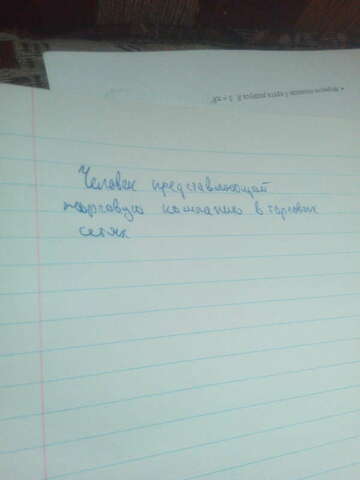 Человек представляющий
торговую компанию в торговых
сетях